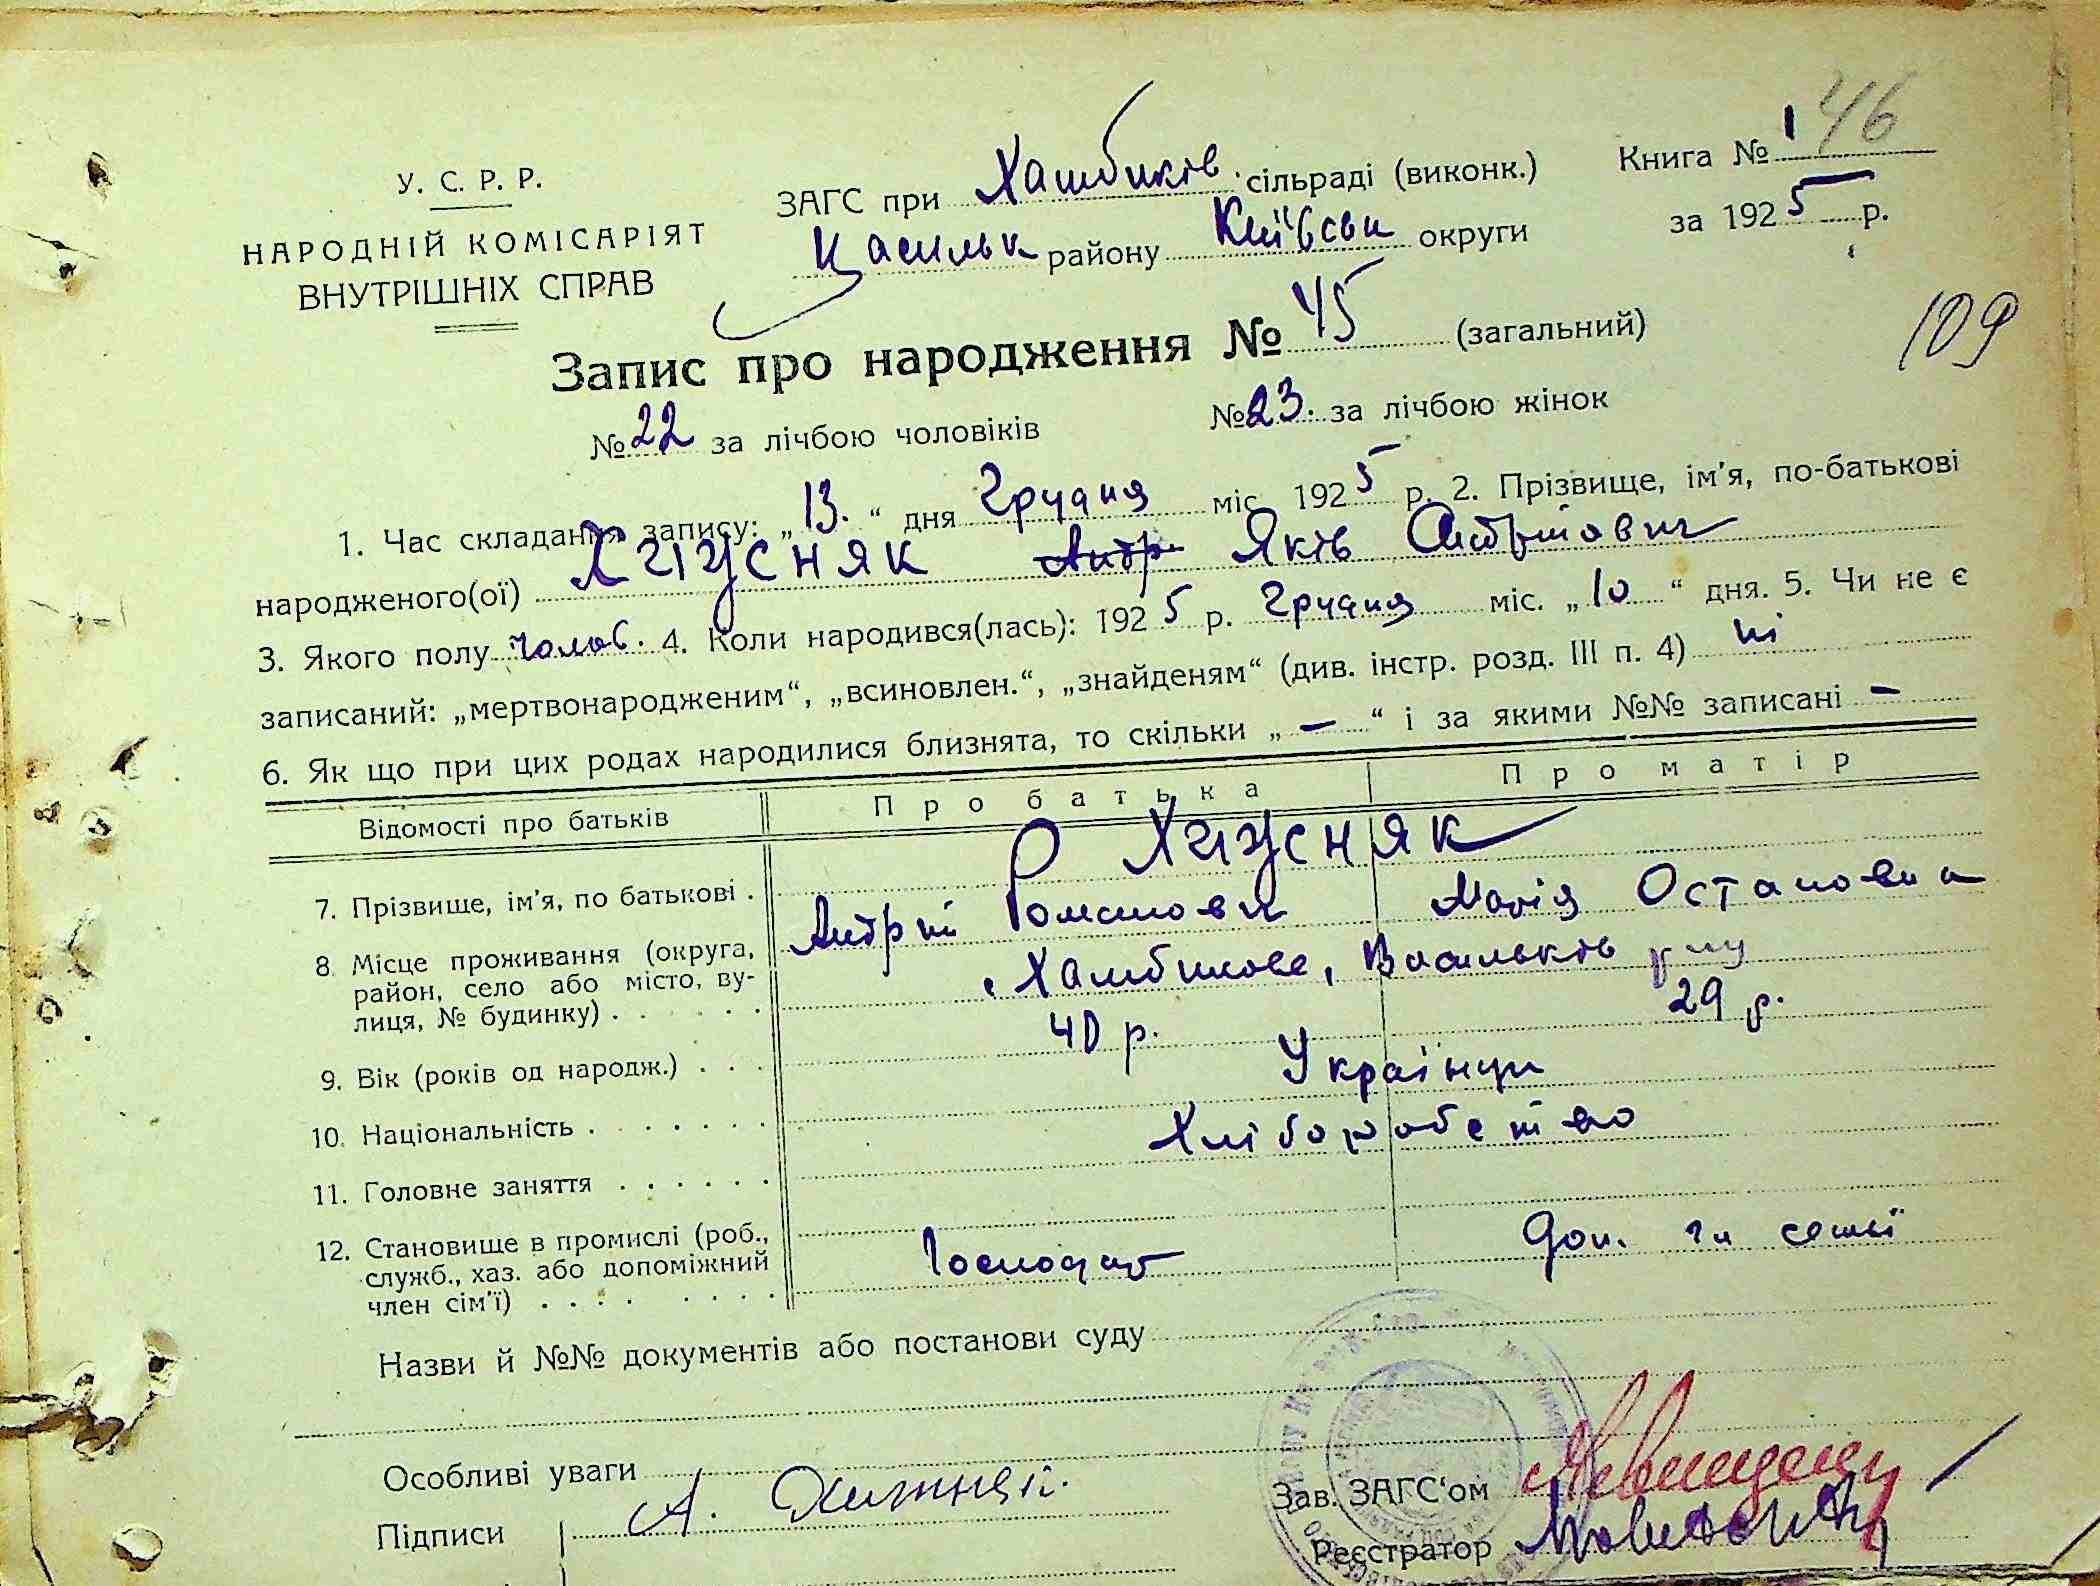 У. С. Р. Р.
НАРОДНІЙ КОМІСАРІЯТ
ВНУТРІШНІХ СПРАВ
ЗАГС при Хамбиків сільраді (виконк.)
району Київськ округи
Книга № 1 46
за 1925 р.
Запис про народження № 45 (загальний)
109
№ 22 за лічбою чоловіків № 23. за лічбою жінок
1. Час складання запису: „13.“ дня Грудня міс 1925 р. 2. Прізвище, ім'я, по-батькові
народженого(ої) Яків Андрійович
3. Якого полу чолов. 4. Коли народився(лась): 1925 р. Грудня міс. „10“ дня. 5. Чи не є
записаний: „мертвонародженим“, „всиновлен.“, „знайденям“ (див. інстр. розд. III п. 4) ні
6. Як що при цих родах народилися близнята, то скільки „ — “ і за якими №№ записані —
Відомості про батьків Про батька Про матір
7. Прізвище, ім'я, по батькові .
Андрій Романови Марія Остаповна
8. Місце проживання (округа,
район, село або місто, ву-
лиця, № будинку) . . . . . .
9. Вік (років од народж.) . . . 40 р. 29 р.
10. Національність . . . . . . . Українці
11. Головне заняття . . . . . . Хліборобство
12. Становище в промислі (роб.,
служб., хаз. або допоміжний
член сім'ї) . . . . . . . .
Господар Доп. чл семьї
Назви й №№ документів або постанови суду
Особливі уваги
Підписи А.
Зав. ЗАГС'ом
Реєстратор